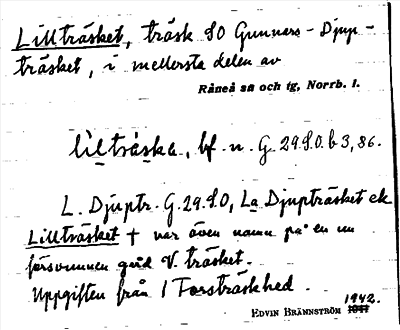 Lillträsket, träsk SO Gunnars-Djup-
träsket, i mellersta delen av
Råneå sn och tg, Norrb. l.
lìltràska, bf. n. G. 29.S.O. b 3, 86.
L. Djuptr. G.29.S.O, La Djupträsket ek
Lillträsket † var även namn på en nu
försvunnen gård V. träsket.
Uppgiften från 1 Forsträskhed.
1942.
EDVIN BRÄNNSTRÖM 1941